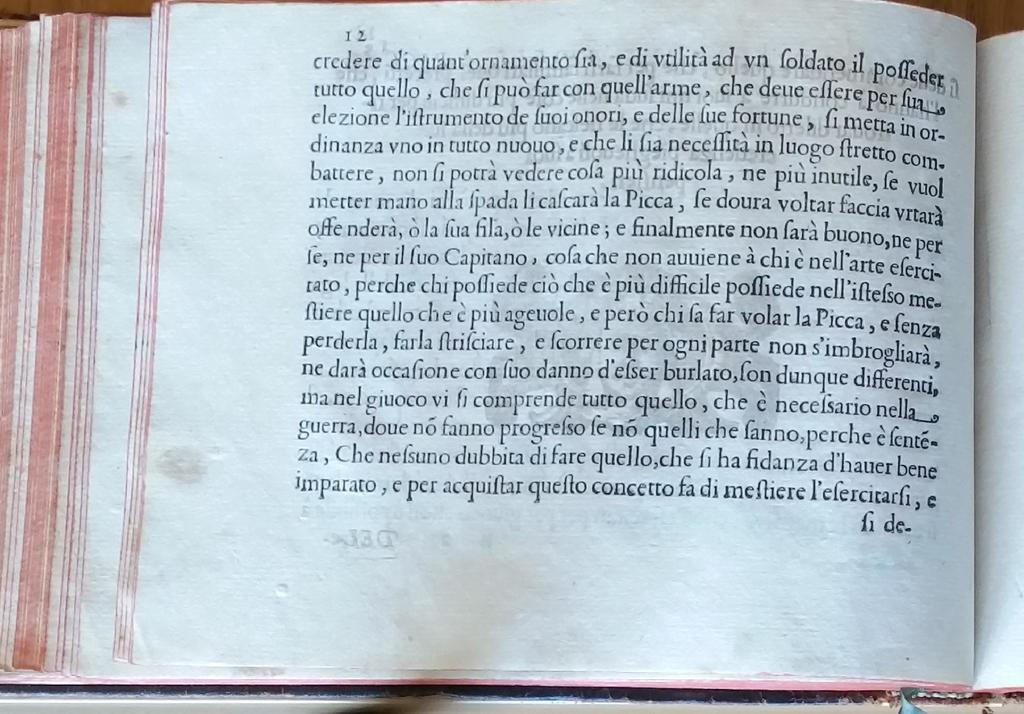 12
credere di quant'ornamento ſia, e di vtilità ad vn ſoldato il poſſeder
tutto quello, che ſi può far con quell'arme, che deue eſſere per ſua
elezione l'iſtrumento de ſuoi onori, e delle ſue fortune, ſi metta in or-
dinanza vno in tutto nuouo, e che li ſia neceſſità in luogo ſtretto com-
battere, non ſi potrà vedere coſa più ridicola, ne più inutile, ſe vuol
metter mano alla ſpada li caſcarà la Picca, ſe doura voltar faccia vrtarà
offenderà, ò la ſua fila, ò le vicine; e finalmente non ſarà buono, ne per
ſe, ne per il ſuo Capitano, coſa che non auuiene à chi è nell'arte eſerci-
tato, perche chi poſſiede ciò che è più difficile poſſiede nell'iſteſso me-
ſtiere quello che è più ageuole, e però chi ſa far volar la Picca, e ſenza
perderla, farla ſtriſciare, e ſcorrere per ogni parte non s'imbrogliarà,
ne darà occaſione con ſuo danno d'eſser burlato, ſon dunque differenti,
ma nel giuoco vi ſi comprende tutto quello, che è neceſsario nella
guerra, doue nõ fanno progreſso ſe nõ quelli che ſanno, perche è ſentẽ-
za, Che neſsuno dubbita di fare quello, che ſi ha fidanza d'hauer bene
imparato, e per acquiſtar queſto concetto fa di meſtiere l'eſercitarſi, e
ſi de-